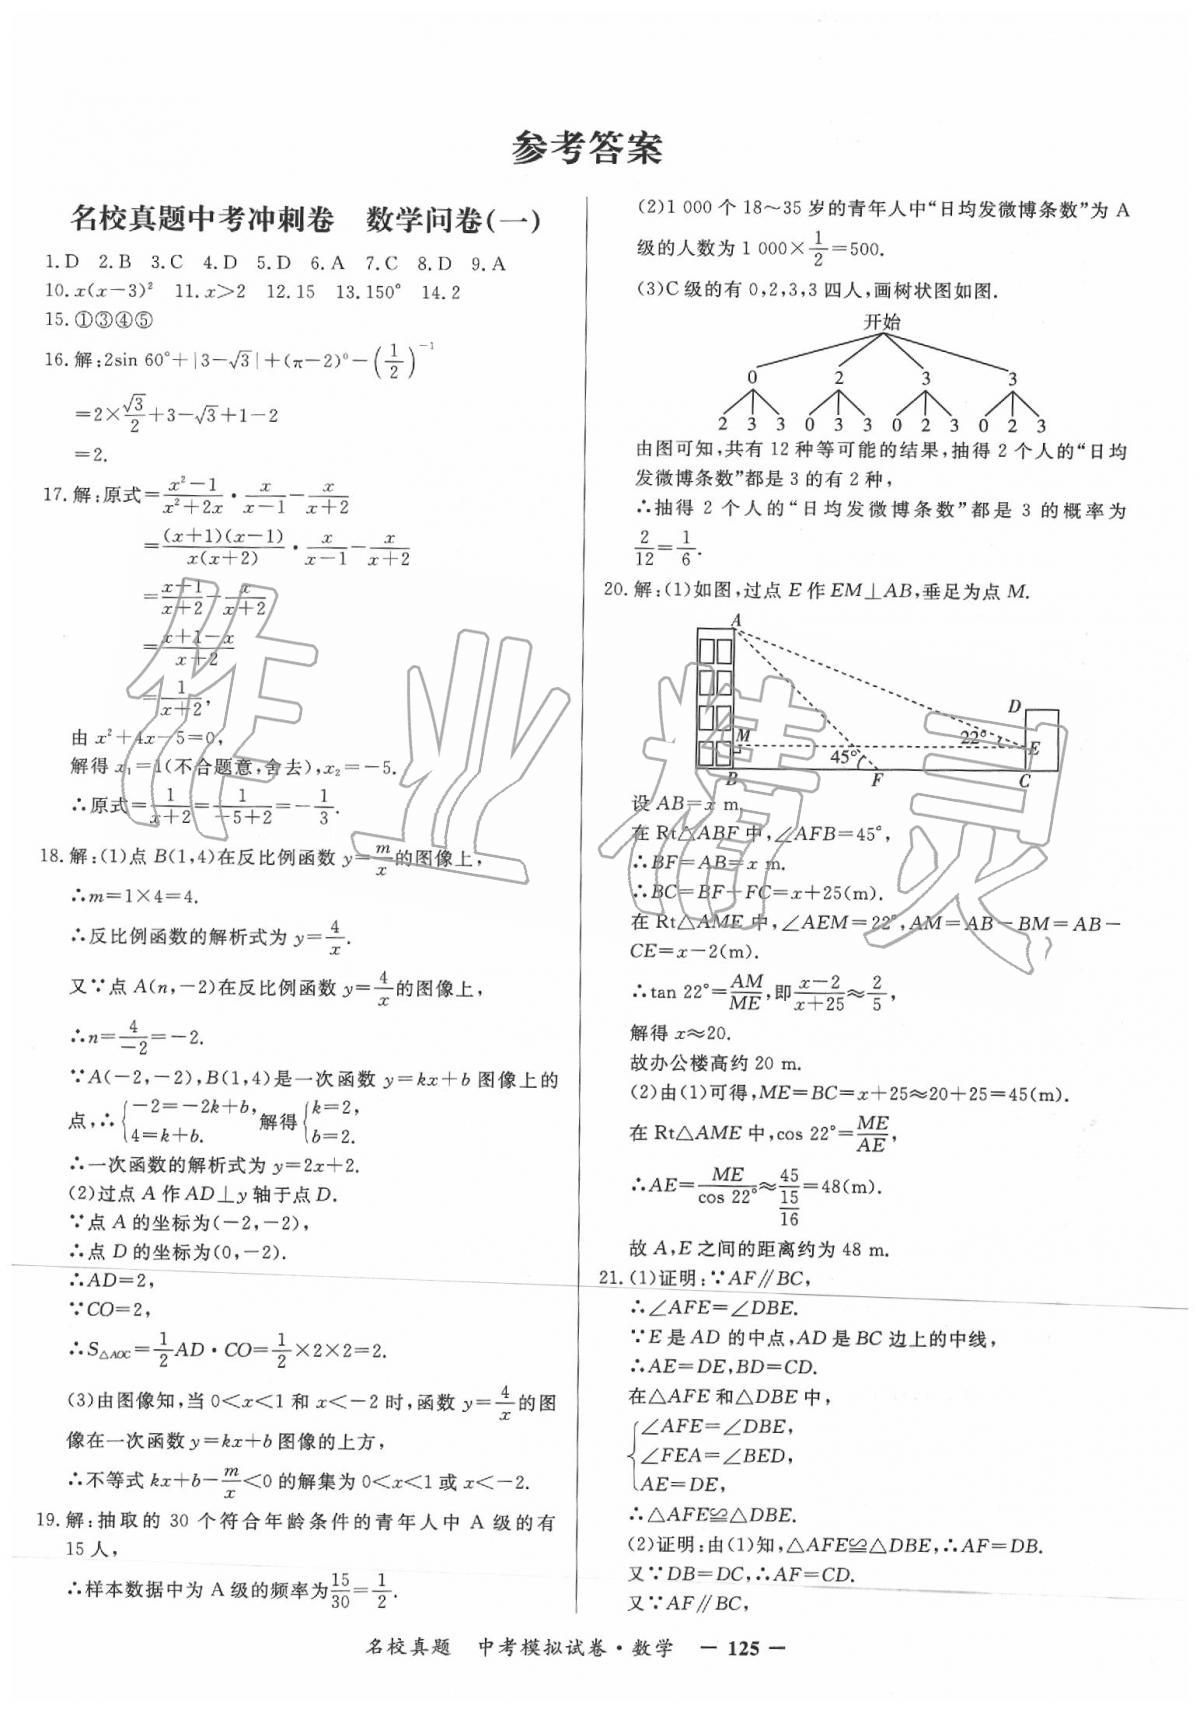 参考答案
名校真题中考冲刺卷　数学问卷(一)
1.D 2.B 3.C 4.D 5.D 6.A 7.C 8.D 9.A
10.x(x-3)² 11.x>2 12.15 13.150° 14.2
15.①③④⑤
16.解:2sin 60°+|3-√3|+(π-2)⁰-(1/2)⁻¹
=2×√3/2+3-√3+1-2
=2.
17.解:原式=(x²-1)/(x²+2x)·x/(x-1)-x/(x+2)
=(x+1)(x-1)/x(x+2)·x/(x-1)-x/(x+2)
=(x+1)/(x+2)-x/(x+2)
=(x+1-x)/(x+2)
=1/(x+2),
由 x²+4x-5=0,
解得 x₁=1(不合题意,舍去),x₂=-5.
∴原式=1/(x+2)=1/(-5+2)=-1/3.
18.解:(1)点 B(1,4)在反比例函数 y=m/x的图像上,
∴m=1×4=4.
∴反比例函数的解析式为 y=4/x.
又∵点 A(n,-2)在反比例函数 y=4/x的图像上,
∴n=4/-2=-2.
∵A(-2,-2),B(1,4)是一次函数 y=kx+b 图像上的
点,∴{-2=-2k+b, 4=k+b. 解得{k=2, b=2.
∴一次函数的解析式为 y=2x+2.
(2)过点 A 作 AD⊥y 轴于点 D.
∵点 A 的坐标为(-2,-2),
∴点 D 的坐标为(0,-2).
∴AD=2,
∵CO=2,
∴S△AOC=1/2AD·CO=1/2×2×2=2.
(3)由图像知,当 0<x<1 和 x<-2 时,函数 y=4/x的图
像在一次函数 y=kx+b 图像的上方,
∴不等式 kx+b-m/x<0 的解集为 0<x<1 或 x<-2.
19.解:抽取的 30 个符合年龄条件的青年人中 A 级的有
15 人,
∴样本数据中为 A 级的频率为15/30=1/2.
(2)1 000 个 18～35 岁的青年人中“日均发微博条数”为 A
级的人数为 1 000×1/2=500.
(3)C级的有 0,2,3,3 四人,画树状图如图.
开始
0 2 3 3
2 3 3 0 3 3 0 2 3 0 2 3
由图可知,共有 12 种等可能的结果,抽得 2 个人的“日均
发微博条数”都是 3 的有 2 种,
∴抽得 2 个人的“日均发微博条数”都是 3 的概率为
2/12=1/6.
20.解:(1)如图,过点 E 作 EM⊥AB,垂足为点 M.
A
D
M 22° E
45°
B F C
设 AB=x m.
在 Rt△ABF 中,∠AFB=45°,
∴BF=AB=x m.
∴BC=BF+FC=x+25(m).
在 Rt△AME 中,∠AEM=22°,AM=AB-BM=AB-
CE=x-2(m).
∴tan 22°=AM/ME,即(x-2)/(x+25)≈2/5,
解得 x≈20.
故办公楼高约 20 m.
(2)由(1)可得,ME=BC=x+25≈20+25=45(m).
在 Rt△AME 中,cos 22°=ME/AE,
∴AE=ME/cos 22°≈45/(15/16)=48(m).
故 A,E 之间的距离约为 48 m.
21.(1)证明:∵AF∥BC,
∴∠AFE=∠DBE.
∵E 是 AD 的中点,AD 是 BC 边上的中线,
∴AE=DE,BD=CD.
在△AFE 和△DBE 中,
{∠AFE=∠DBE,
∠FEA=∠BED,
AE=DE,
∴△AFE≌△DBE.
(2)证明:由(1)知,△AFE≌△DBE,∴AF=DB.
又∵DB=DC,∴AF=CD.
又∵AF∥BC,
名校真题　中考模拟试卷·数学　— 125 —
作业精灵